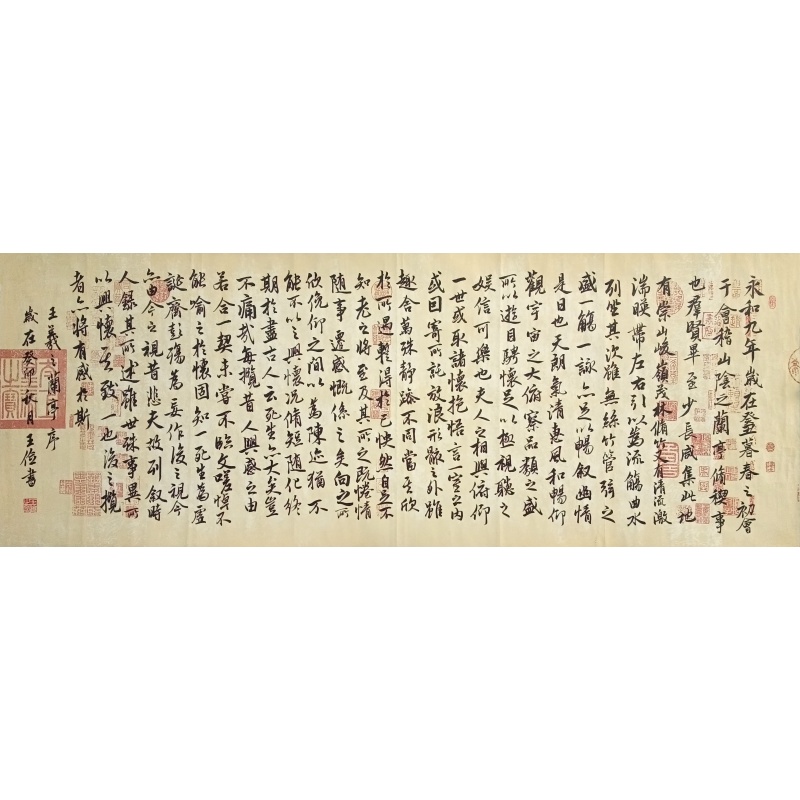 永和九年歲在癸丑暮春之初會
于會稽山陰之蘭亭脩禊事
也羣賢畢至少長咸集此地
有崇山峻嶺茂林脩竹又有清流激
湍暎帶左右引以為流觴曲水
列坐其次雖無絲竹管弦之
盛一觴一詠亦足以暢叙幽情
是日也天朗氣清惠風和暢仰
觀宇宙之大俯察品類之盛
所以遊目騁懷足以極視聽之
娱信可樂也夫人之相與俯仰
一世或取諸懷抱悟言一室之内
或因寄所託放浪形骸之外雖
趣舍萬殊靜躁不同當其欣
於所遇暫得於己快然自足不
知老之將至及其所之既惓情
隨事遷感慨係之矣向之所
欣俛仰之間以為陳迹猶不
能不以之興懷况脩短隨化終
期於盡古人云死生亦大矣豈
不痛哉每攬昔人興感之由
若合一契未嘗不臨文嗟悼不
能喻之於懷固知一死生為虛
誕齊彭殤為妄作後之視今
亦由今之視昔悲夫故列叙時
人錄其所述雖世殊事異所
以興懷其致一也後之攬
者亦將有感於斯
王羲之蘭亭序
歲在癸卯秋月王位書